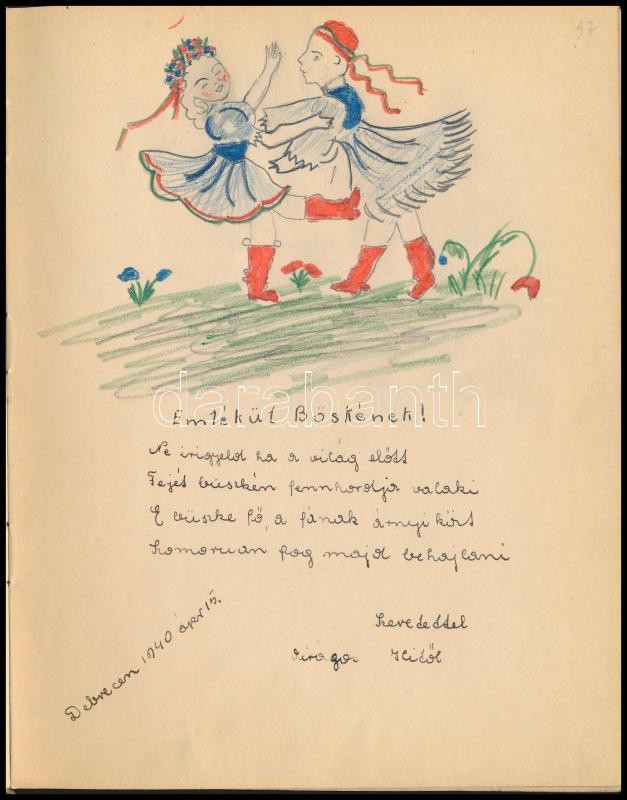 37
Emlékül Böskének!
Ne irigyeld ha a világ előtt
Fejét büszkén fennhordja valaki
E büszke fő, a fának árnyi közt
Szomoruan fog majd behajlani
Szeretettel
Ilitől
Debrecen 1940 ápr 15.
darabanth